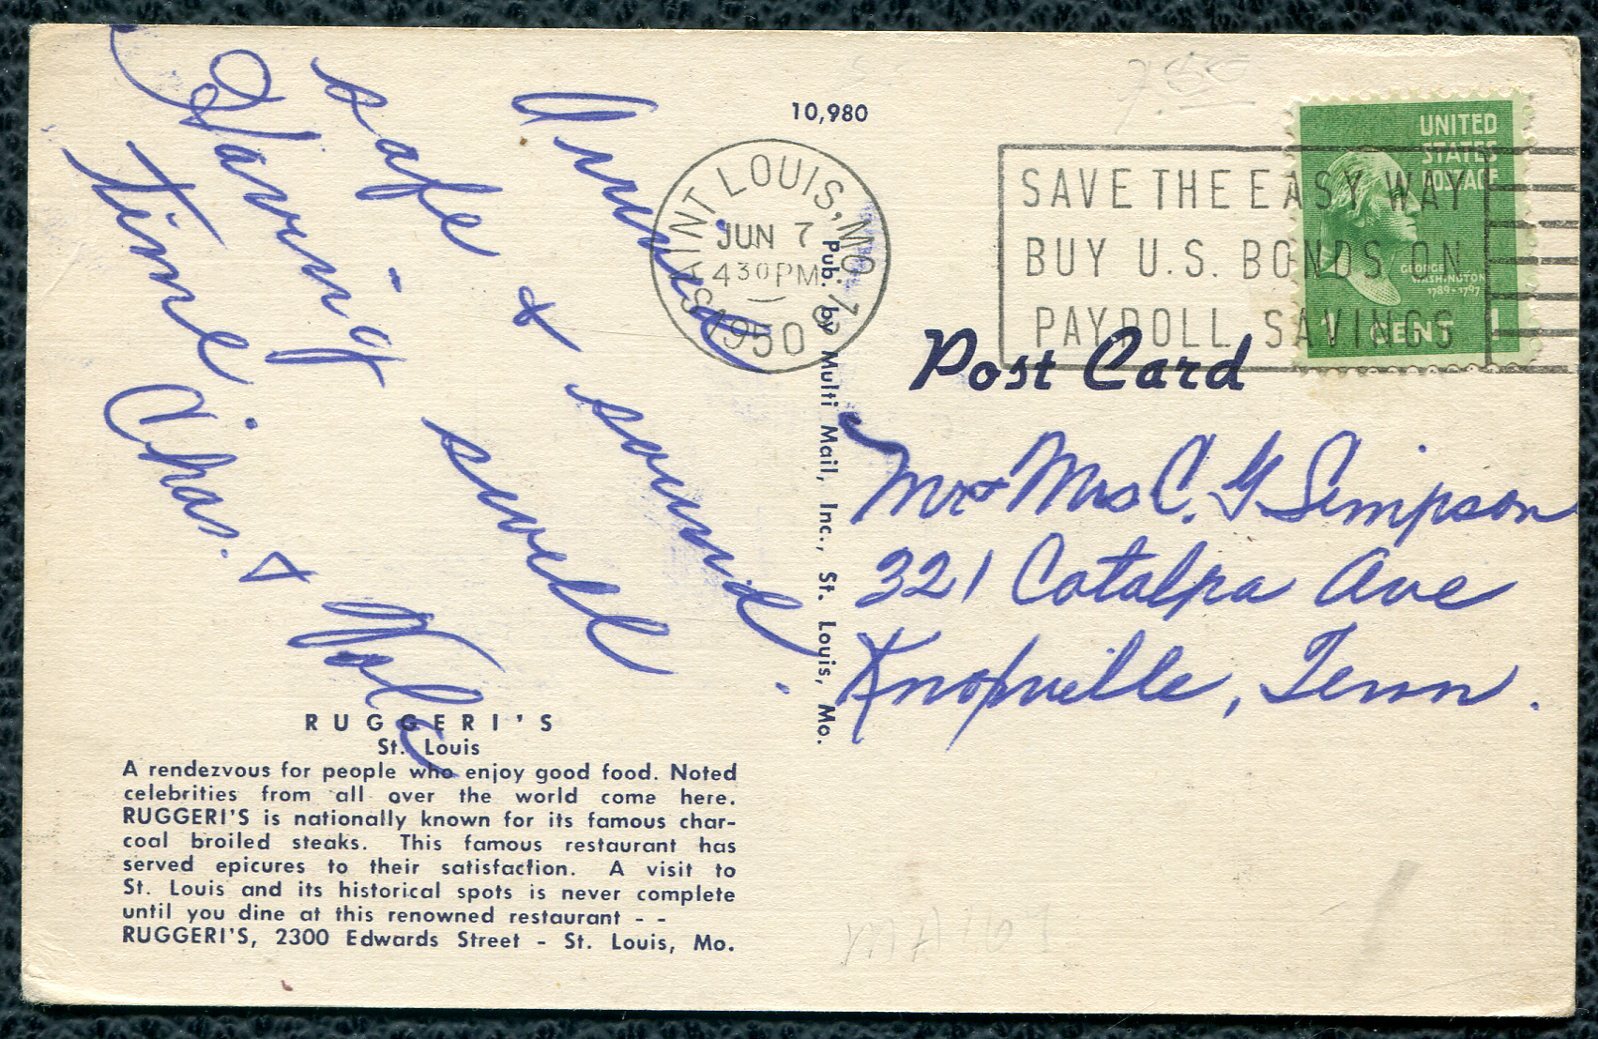 10,980
SAINT LOUIS, MO.
JUN 7
430 PM
1950
SAVE THE EASY WAY
BUY U.S. BONDS ON
PAYROLL SAVINGS
UNITED
STATES
POSTAGE
GEORGE
WASHINGTON
1789-1797
1 CENT 1
Post Card
Arrived
safe & sound.
Having swell
time
Chas. &
Pub. by Multi Mail, Inc., St. Louis, Mo.
Mr & Mrs C. G Simpson
321 Catalpa Ave
Knoxville, Tenn.
RUGGERI'S
St. Louis
A rendezvous for people who enjoy good food. Noted
celebrities from all over the world come here.
RUGGERI'S is nationally known for its famous char-
coal broiled steaks. This famous restaurant has
served epicures to their satisfaction. A visit to
St. Louis and its historical spots is never complete
until you dine at this renowned restaurant - -
RUGGERI'S, 2300 Edwards Street - St. Louis, Mo.